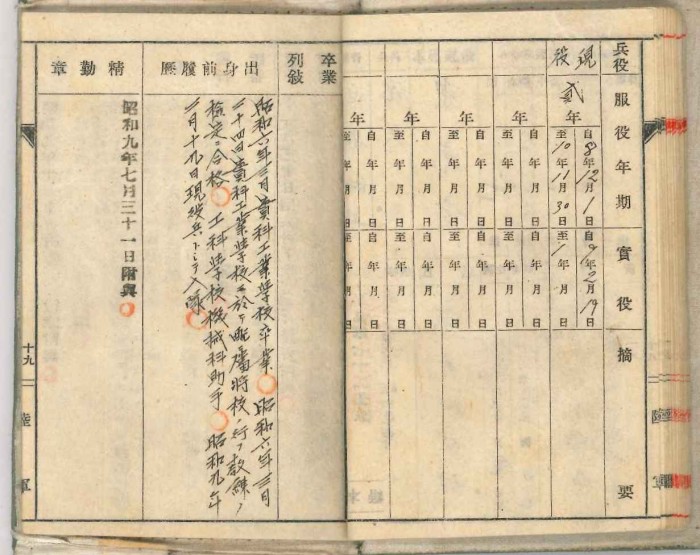 兵役
現役
服役年期
貳年
自8年12月1日
至10年11月30日
年
自年月日
至年月日
年
自年月日
至年月日
年
自年月日
至年月日
實役
自年2月19日
至年月日
自年月日
至年月日
自年月日
至年月日
自年月日
至年月日
摘要
陸軍
卒業列敍
出身前履歷
昭和六年三月貴科工業學校卒業 昭和六年三月
二十四日貴科工業學校ニ於テ配屬將校ノ行フ教練ノ
檢定ニ合格 工科學校機械科助手 昭和九年
二月十九日現役兵トシテ入隊
精勤章
昭和九年七月三十一日附與
十九
陸軍